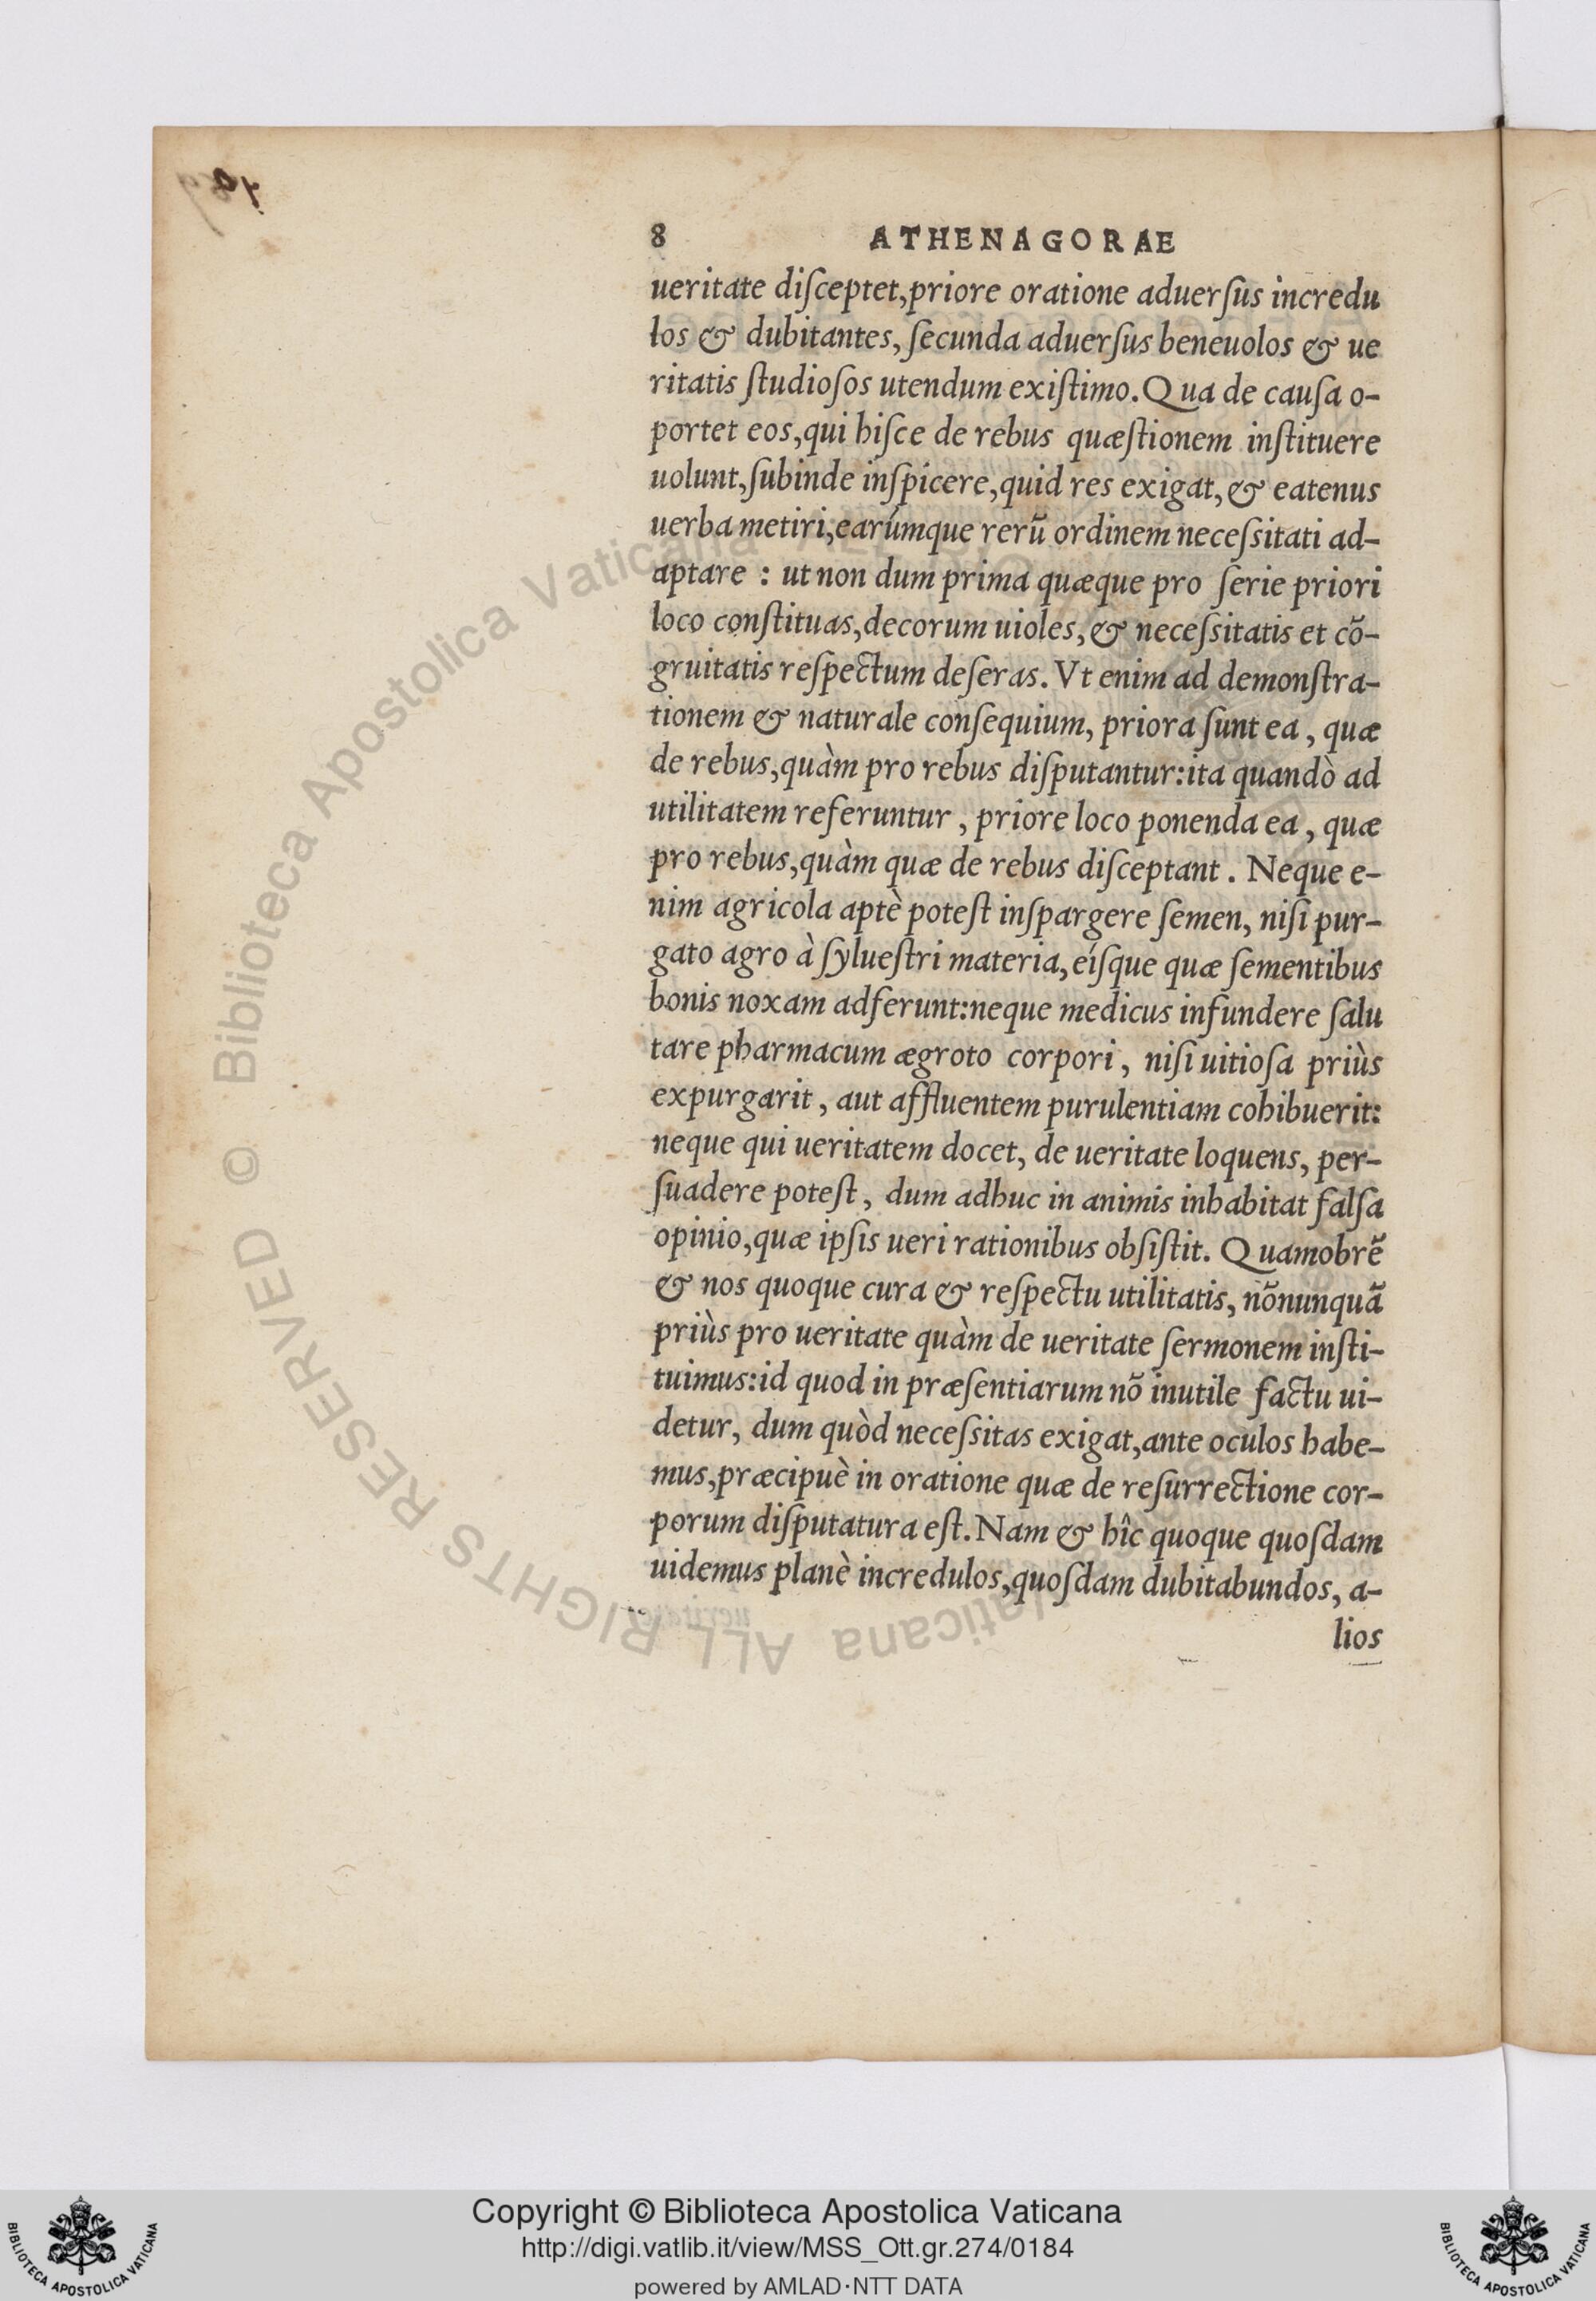 8 ATHENAGORAE
ueritate diſceptet,priore oratione aduerſus incredu
los & dubitantes, ſecunda aduerſus beneuolos & ue
ritatis ſtudioſos utendum exiſtimo. Qua de cauſa o-
portet eos,qui hiſce de rebus quæſtionem inſtituere
uolunt,ſubinde inſpicere,quid res exigat,& eatenus
uerba metiri,earúmque rerū ordinem neceſsitati ad-
aptare : ut non dum prima quæque pro ſerie priori
loco conſtituas,decorum uioles,& neceſsitatis et cō-
gruitatis reſpectum deſeras. Vt enim ad demonſtra-
tionem & naturale conſequium, priora ſunt ea , quæ
de rebus,quàm pro rebus diſputantur:ita quandò ad
utilitatem referuntur , priore loco ponenda ea , quæ
pro rebus,quàm quæ de rebus diſceptant . Neque e-
nim agricola aptè poteſt inſpargere ſemen, niſi pur-
gato agro à ſylueſtri materia,eíſque quæ ſementibus
bonis noxam adferunt:neque medicus infundere ſalu
tare pharmacum ægroto corpori , niſi uitioſa priùs
expurgarit , aut affluentem purulentiam cohibuerit:
neque qui ueritatem docet, de ueritate loquens, per-
ſuadere poteſt , dum adhuc in animis inhabitat falſa
opinio,quæ ipſis ueri rationibus obſiſtit. Quamobrē
& nos quoque cura & reſpectu utilitatis, nōnunquā
priùs pro ueritate quàm de ueritate ſermonem inſti-
tuimus:id quod in præſentiarum nō inutile factu ui-
detur, dum quòd neceſsitas exigat,ante oculos habe-
mus,præcipuè in oratione quæ de reſurrectione cor-
porum diſputatura eſt. Nam & hîc quoque quoſdam
uidemus planè incredulos,quoſdam dubitabundos, a-
lios
© Biblioteca Apostolica Vaticana ALL RIGHTS RESERVED
Copyright © Biblioteca Apostolica Vaticana
http://digi.vatlib.it/view/MSS_Ott.gr.274/0184
powered by AMLAD·NTT DATA
BIBLIOTECA APOSTOLICA VATICANA
BIBLIOTECA APOSTOLICA VATICANA